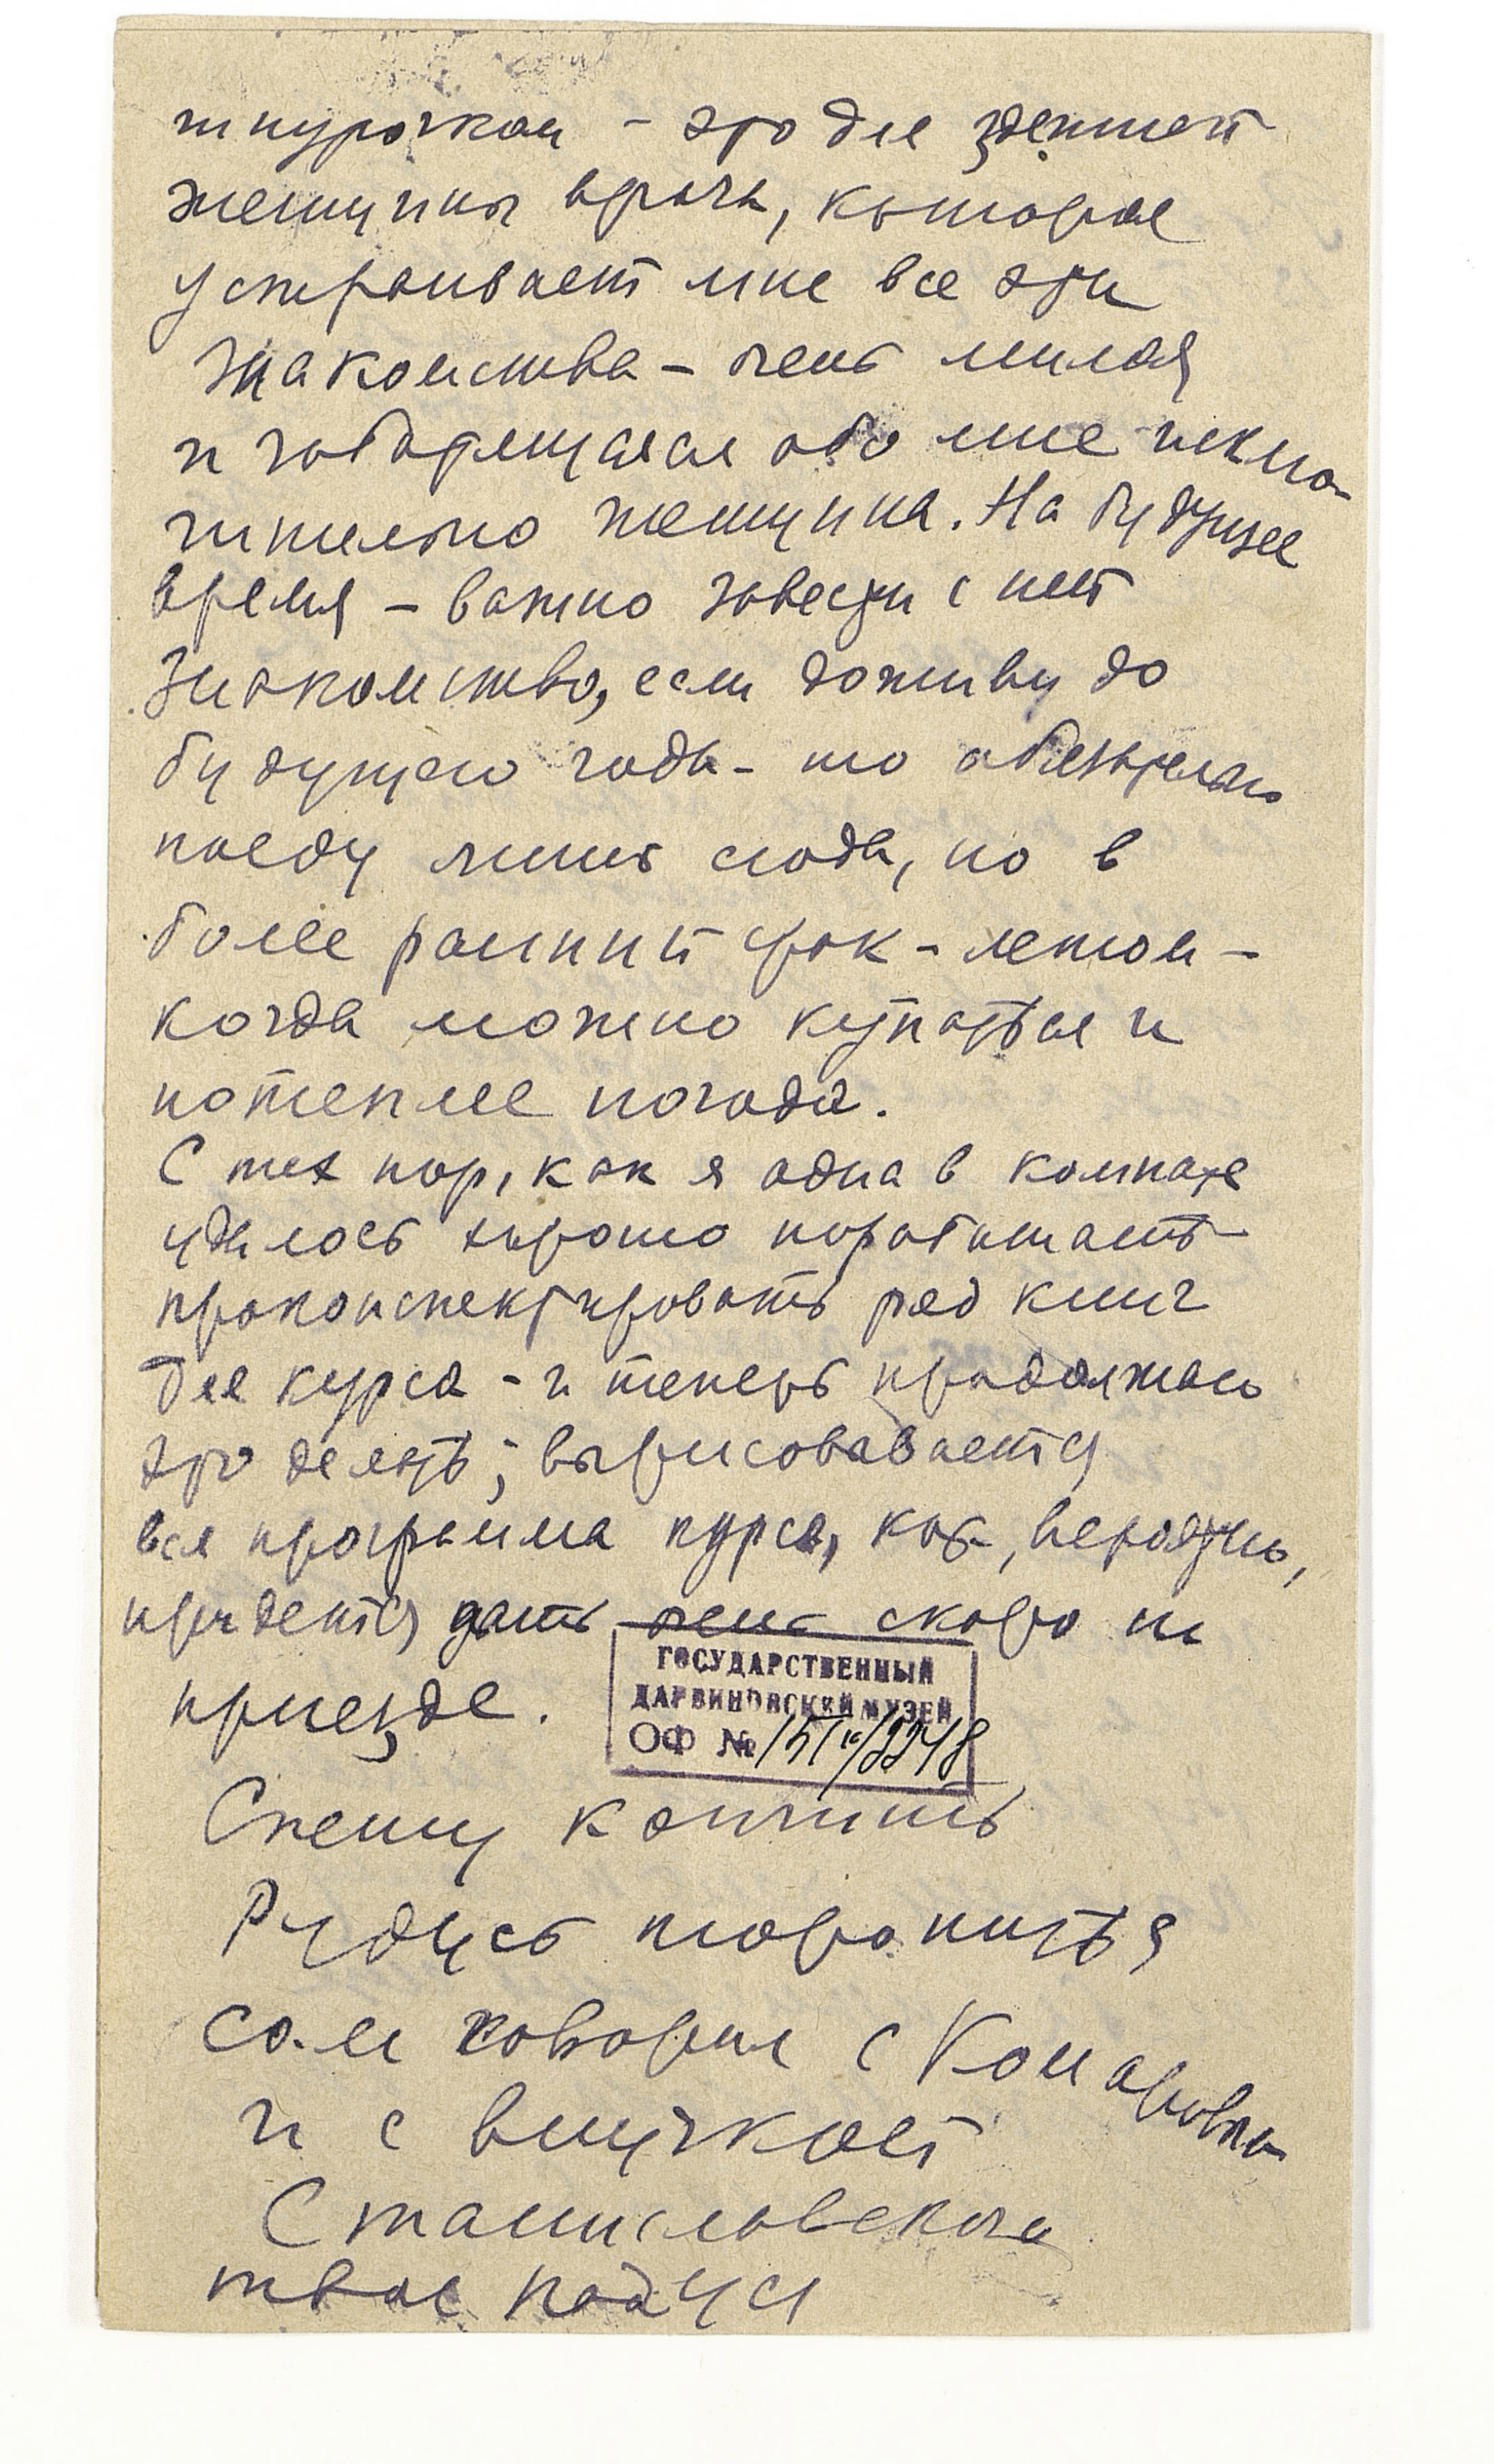 шкурочкам - это для здешней
женщины врача, которая
устраивает мне все эти
знакомства - очень милая
и заботящаяся обо мне исклю-
чительно женщина. На будущее
время - важно завести с ней
знакомство, если доживу до
будущего года - то обязательно
поеду лишь сюда, но в
более ранний срок - летом -
когда можно купаться и
потеплее погода.
С тех пор, как я одна в комнате
удалось хорошо поработать
проконспектировать ряд книг
для курса - и теперь продолжаю
это делать; вырисовывается
вся программа курса, кот., вероятно,
придется дать очень скоро по
приезде.
ГОСУДАРСТВЕННЫЙ
ДАРВИНОВСКИЙ МУЗЕЙ
ОФ №
Спешу кончить
торопиться
сам говорил с Комаровым
и с внучкой
Станиславского
твоя Надуся